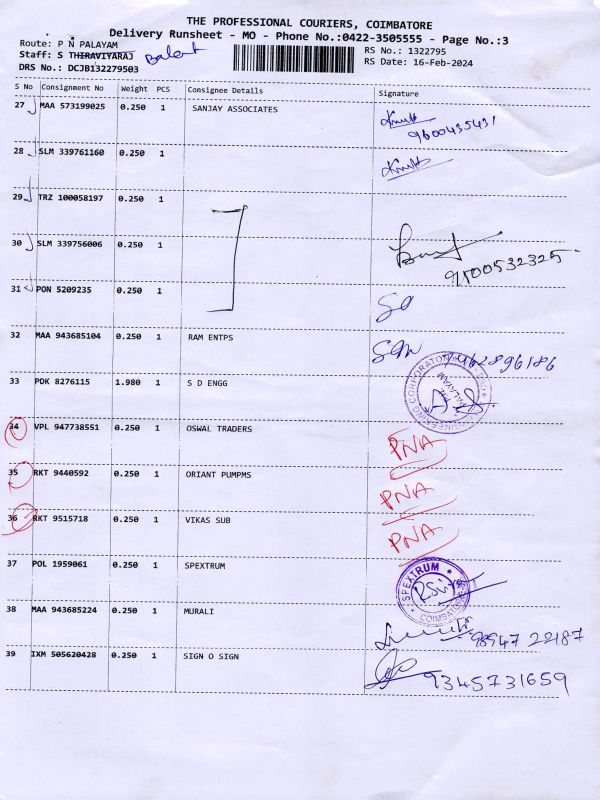 THE PROFESSIONAL COURIERS, COIMBATORE
Delivery Runsheet - MO - Phone No.:0422-3505555 - Page No.:3
Route: P N PALAYAM
Staff: S THIRAVIYARAJ
DRS No.: DCJB132279503
RS No.: 1322795
RS Date: 16-Feb-2024
S No Consignment No Weight PCS Consignee Details Signature
27 MAA 573199025 0.250 1 SANJAY ASSOCIATES
9600435431
28 SLM 339761160 0.250 1
29 TRZ 100058197 0.250 1
30 SLM 339756006 0.250 1
9100532325
31 PON 5209235 0.250 1
32 MAA 943685104 0.250 1 RAM ENTPS
33 PDK 8276115 1.980 1 S D ENGG
PALAYAM
34 VPL 947738551 0.250 1 OSWAL TRADERS PNA
35 RKT 9440592 0.250 1 ORIANT PUMPMS PNA
36 RKT 9515718 0.250 1 VIKAS SUB PNA
37 POL 1959061 0.250 1 SPEXTRUM
SPEXTRUM
COIMBATORE
38 MAA 943685224 0.250 1 MURALI
98947 22187
39 IXM 505620428 0.250 1 SIGN O SIGN
9345731659